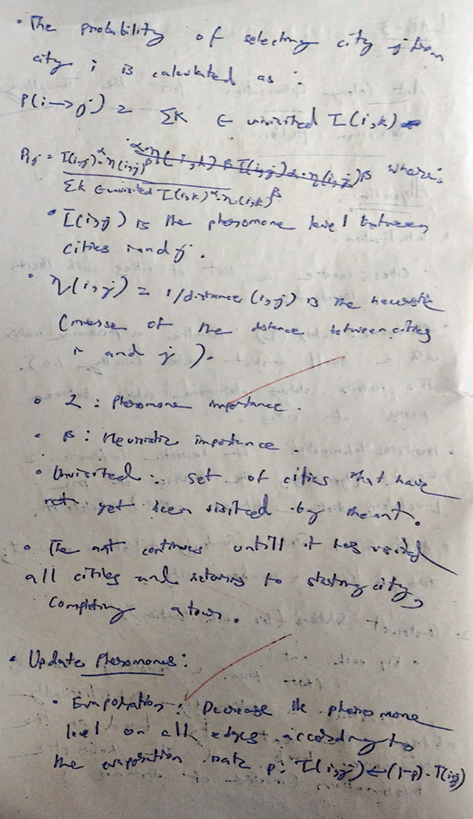 • The probability of selecting city j from
city i is calculated as :
P(i→j) = ΣK ∈ univisited I(i,k)
Pij = I(i,j)^α · η(i,j)^β where
ΣK ∈ univisited I(i,k)^α · η(i,k)^β
• I(i,j) is the pheromone level between
cities i and j.
• η(i,j) = 1/distance(i,j) is the heuristic
(inverse of the distance between cities
i and j).
• α : Pheromone importance.
• β : Heuristic importance
• Unvisited : set of cities that have
not yet been visited by the ant.
• The ant continues untill it has visited
all cities and returns to starting city,
Completing a tour.
• Update Pheromones :
• Evaporation : Decrease the pheromone
level on all edges according to
the evaporation rate p : I(i,j) ← (1-p) · T(i,j)